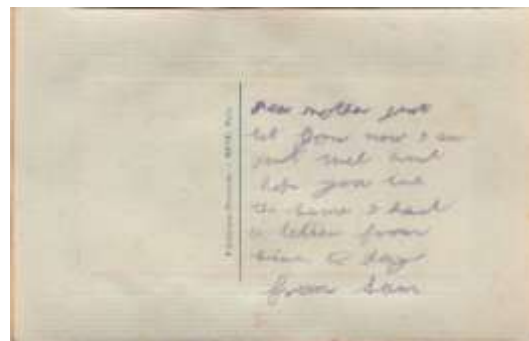 Dear mother just
let you now I am
just well and
hope you are
the same I had
a letter from
to day
from Sam